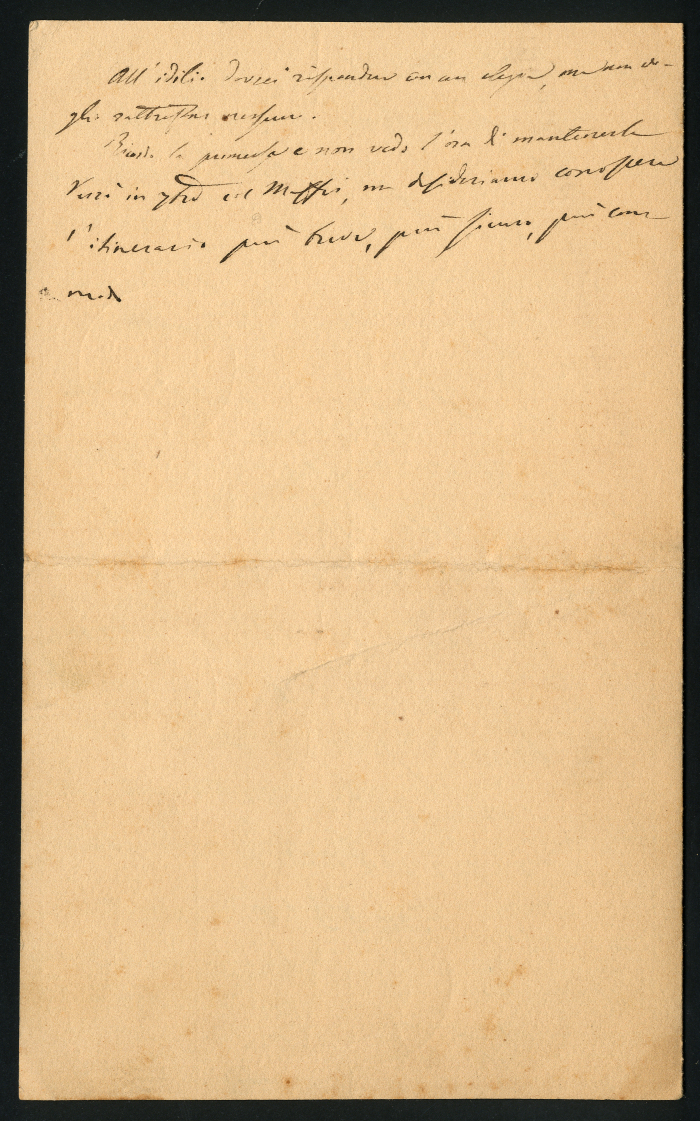 All'idilio dovrei rispondere con un elegia, ma non vo-
glio rattristare nessuno.
Ricordo la promessa e non vedo l'ora di mantenerla
Verrò in col Maffei, ma desideriamo conoscere
l'itinerario più breve, più sicuro, più com
modo